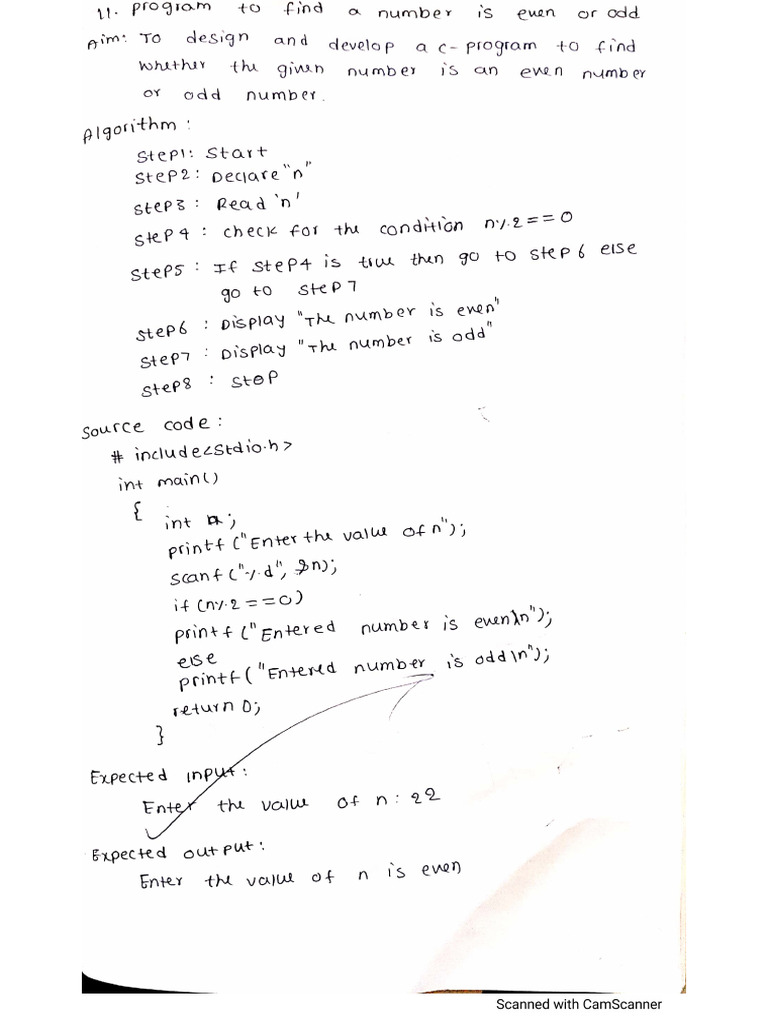 11. program to find a number is even or odd
Aim: To design and develop a c-program to find
whether the given number is an even number
or odd number.
Algorithm :
Step1: Start
Step2: Declare "n"
Step3 : Read 'n'
Step 4 : check for the condition n%2==0
Step5 : If step4 is true then go to step 6 else
go to step 7
Step6 : Display "The number is even"
Step7 : Display "The number is odd"
Step8 : Stop
Source code :
# include<stdio.h>
int main()
{
int n;
printf ("Enter the value of n");
scanf ("%d", &n);
if (n%2==0)
printf ("Entered number is even\n");
else
printf ("Entered number is odd\n");
return 0;
}
Expected input :
Enter the value of n : 22
Expected output :
Enter the value of n is even
Scanned with CamScanner